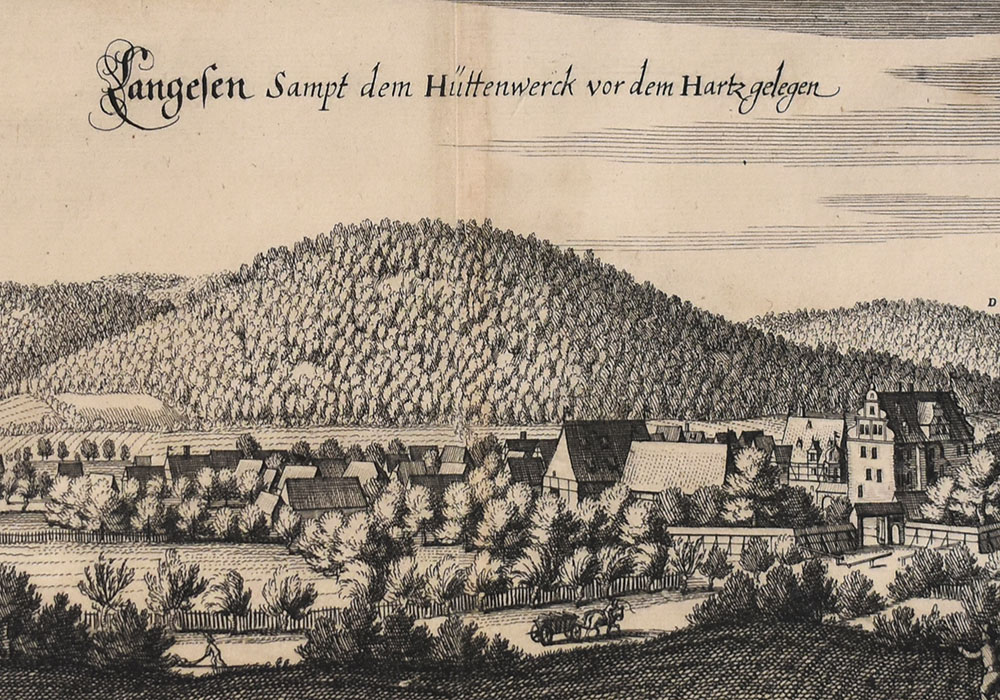 Langeſen Sampt dem Hüttenwerck vor dem Hartz gelegen
D